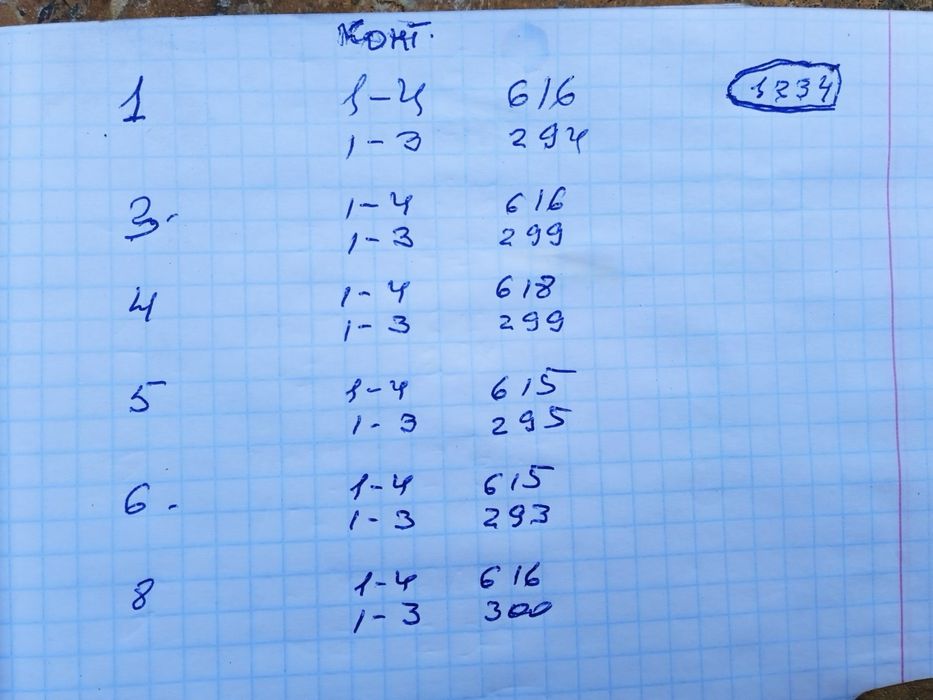 Конт.
1 1-4 616 1234
1-3 294
3. 1-4 616
1-3 299
4 1-4 618
1-3 299
5 1-4 615
1-3 295
6. 1-4 615
1-3 293
8 1-4 616
1-3 300